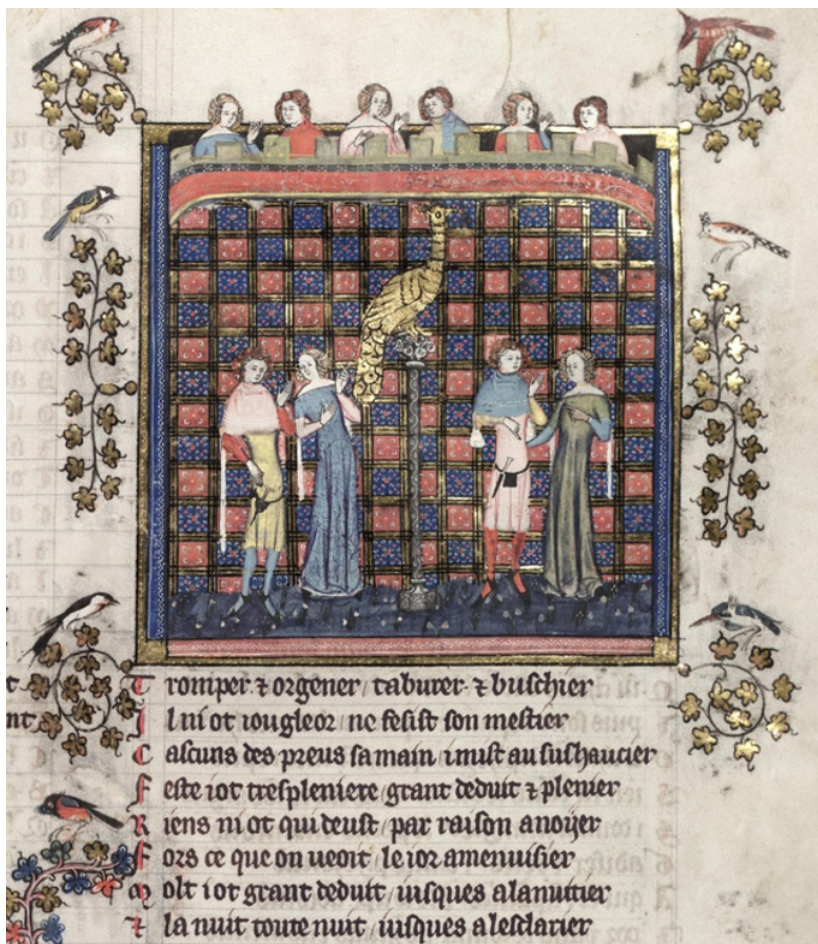 T romper. ⁊ orgener / taburer. ⁊ buschier
I l ni ot iougleor / ne fesist son mestier
C ascuns des preus sa main / i mist au sushaucier
F este i ot trespleniere grant deduit ⁊ plenier
R iens ni ot qui deust / par raison anoijer
F ors ce que on ueoit / le ior amenuisier
M olt i ot grant deduit / iusques alanuitier
⁊ la nuit toute nuit / iusques alesclarier